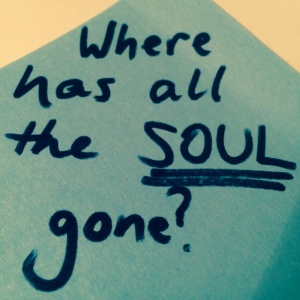 Where
has all
the SOUL
gone?